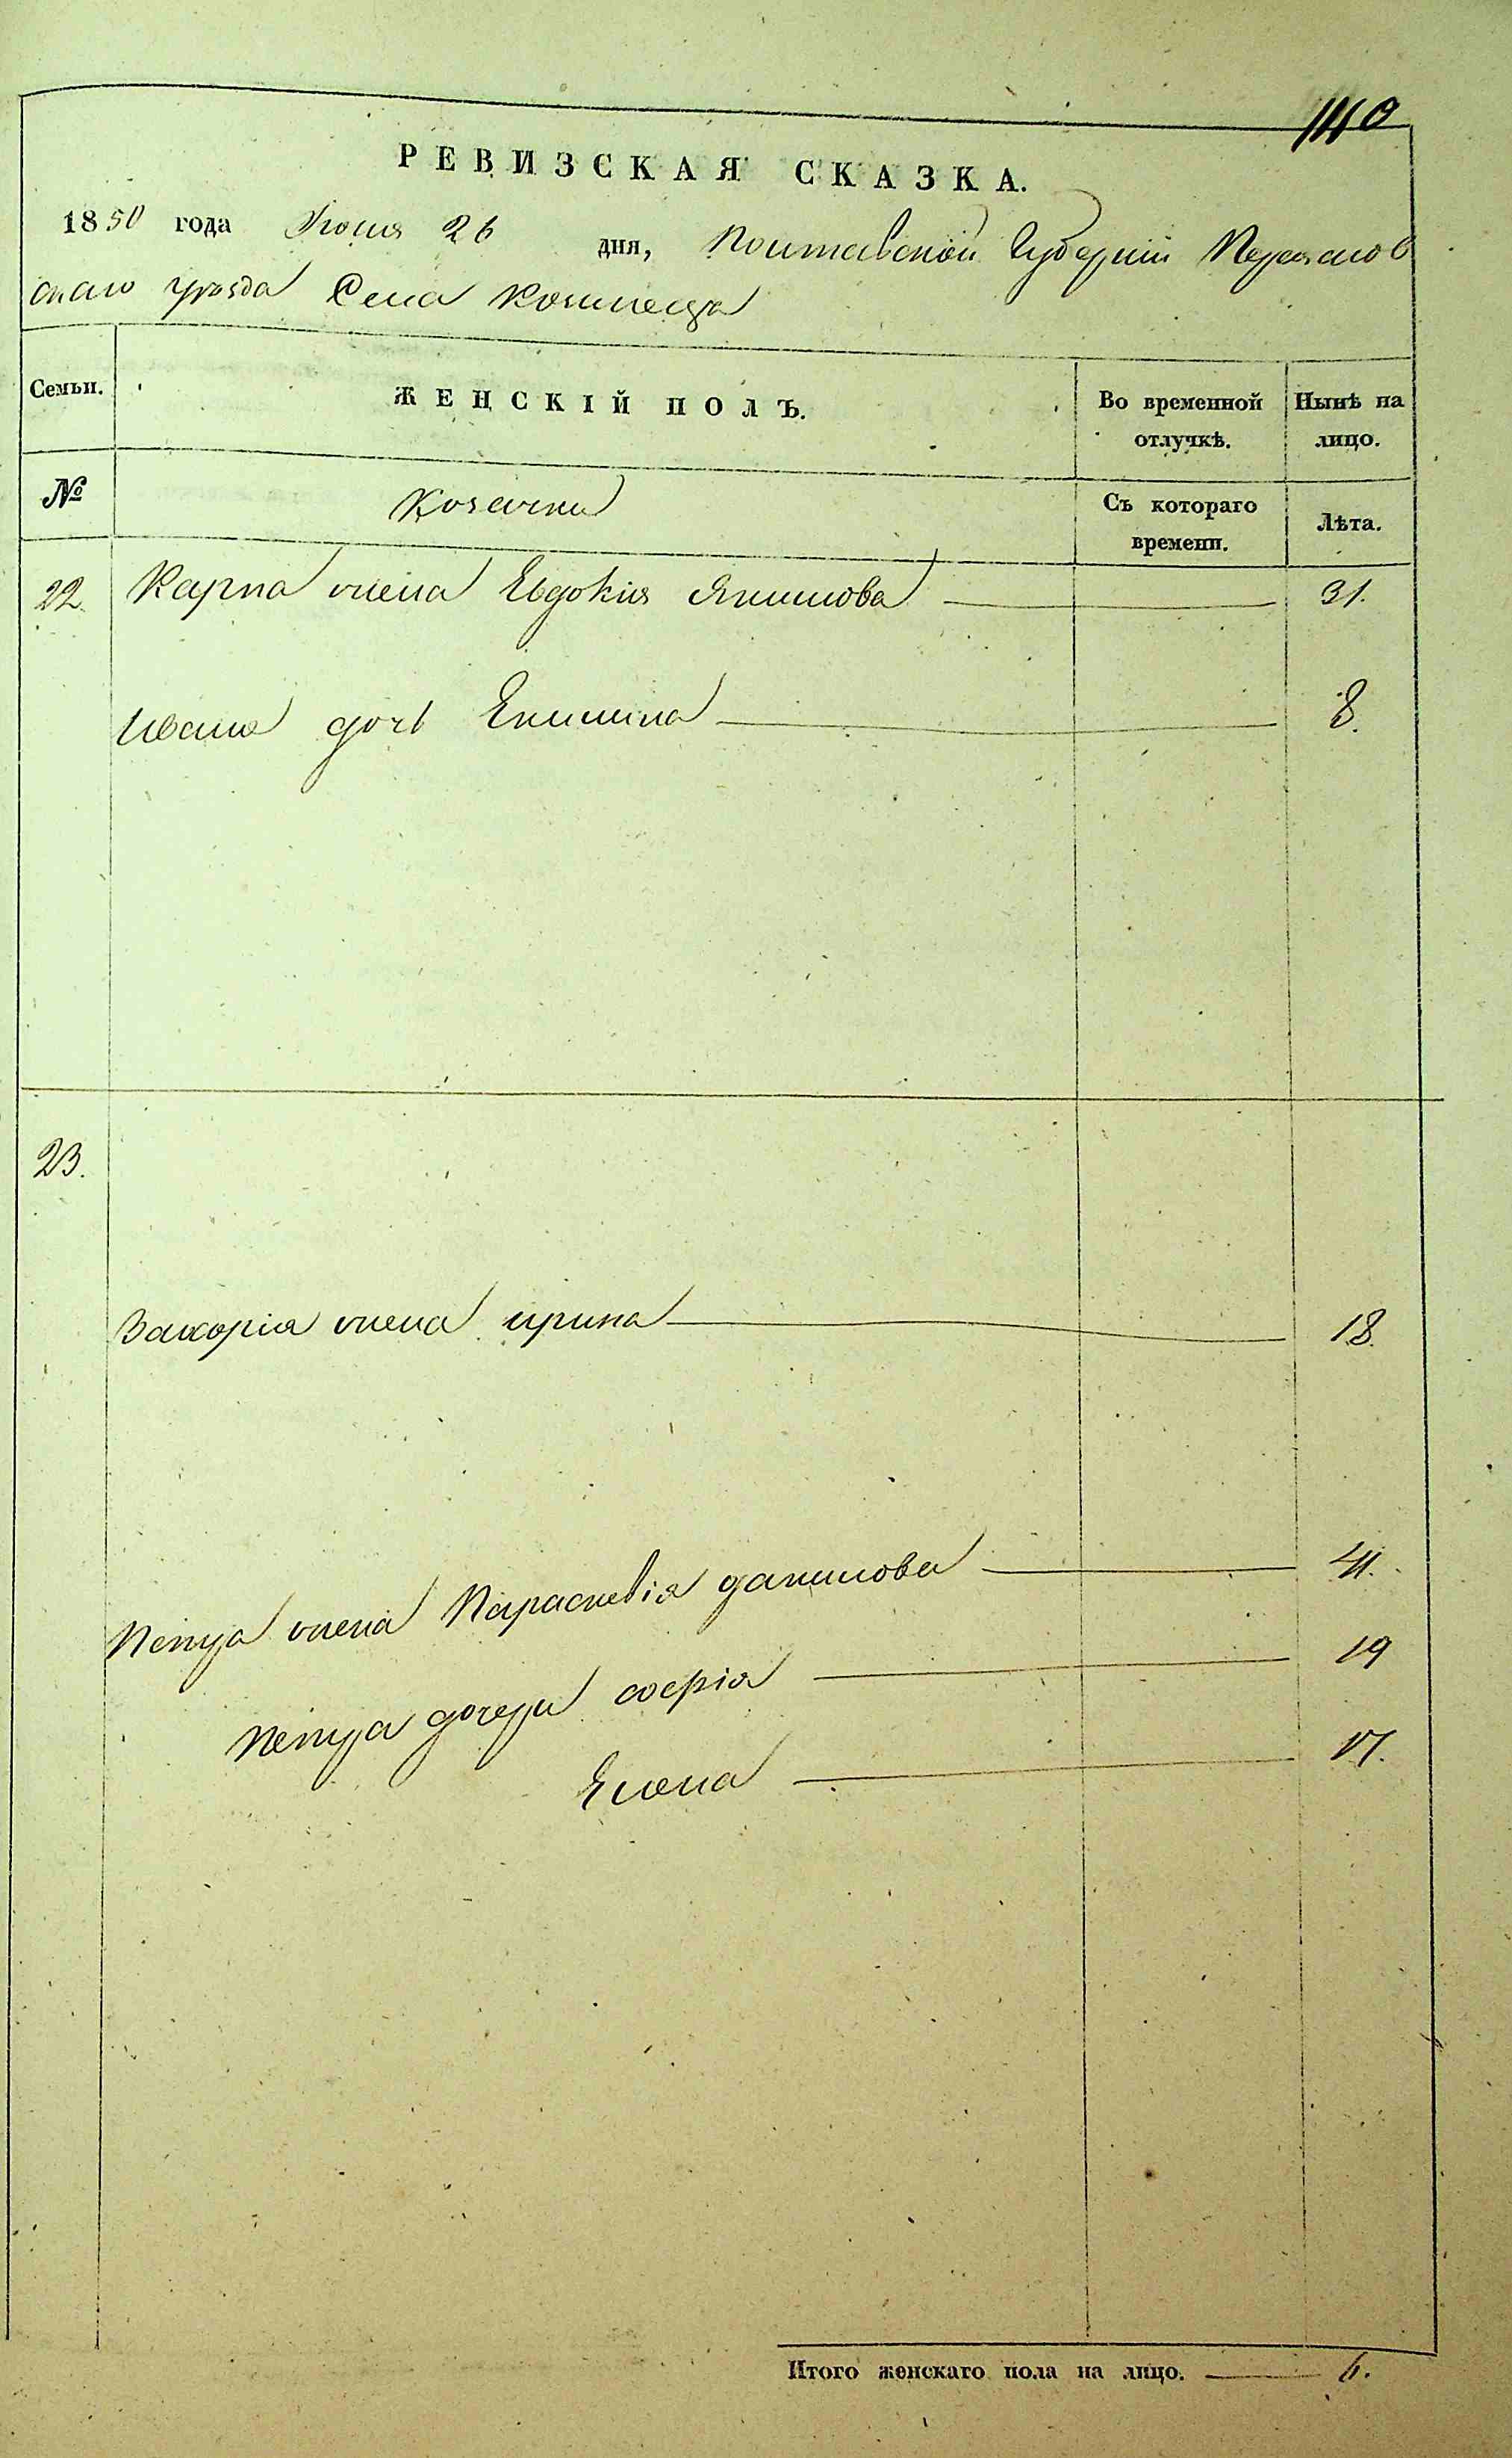 140
РЕВИЗСКАЯ СКАЗКА.
1850 года Июня 26 дня, Полтавской Губернии Переяслов
скаго уѣзда Села
Семьи. ЖЕНСКІЙ ПОЛЪ. Во временной отлучкѣ. Нынѣ на лицо.
№ Козачки Съ котораго времени. Лѣта.
22. Карпа жена Евдокія Якимова 31.
Ивана дочь 8.
23.
Захорія жена ирина 18.
Петра жена Параскевія данилова 41.
Петра дочери софія 19
Елена 17.
Итого женскаго пола на лицо. 6.